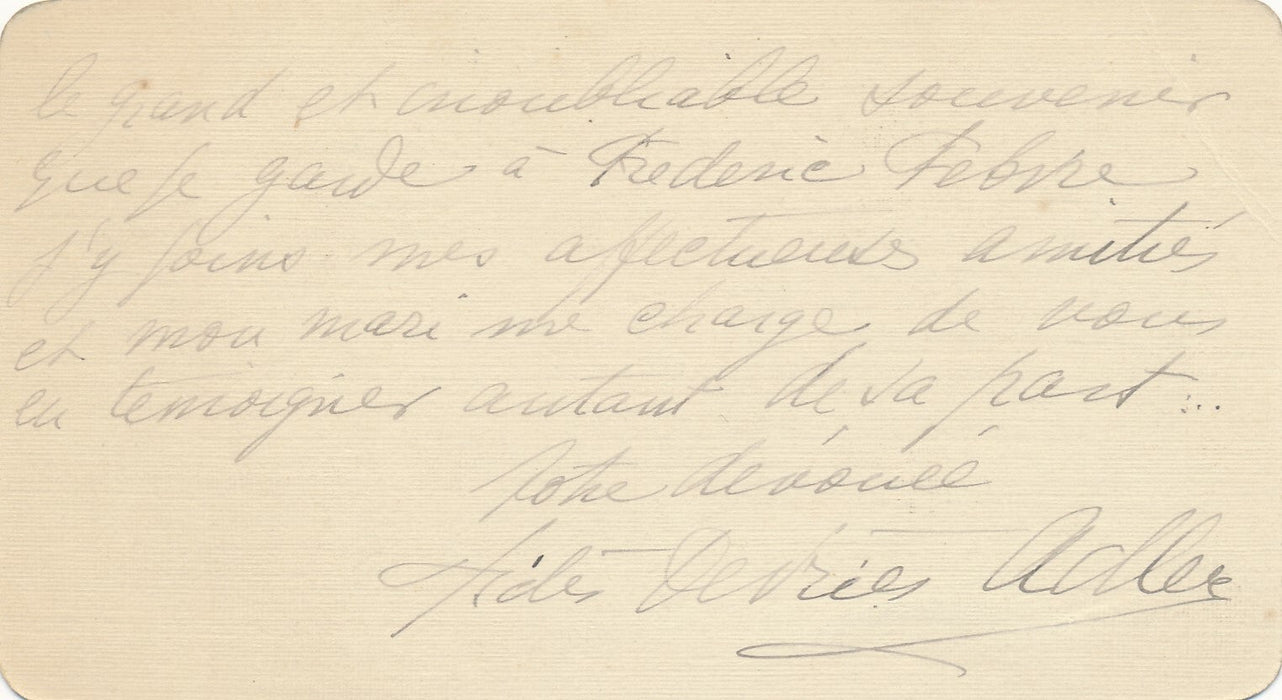 le grand et inoubliable souvenir
que je garde à Frederic Febvre
j'y joins mes affectueuses amitiés
et mon mari me charge de vous
en témoigner autant de sa part...
Votre dévouée
Fidès Devriès Adler